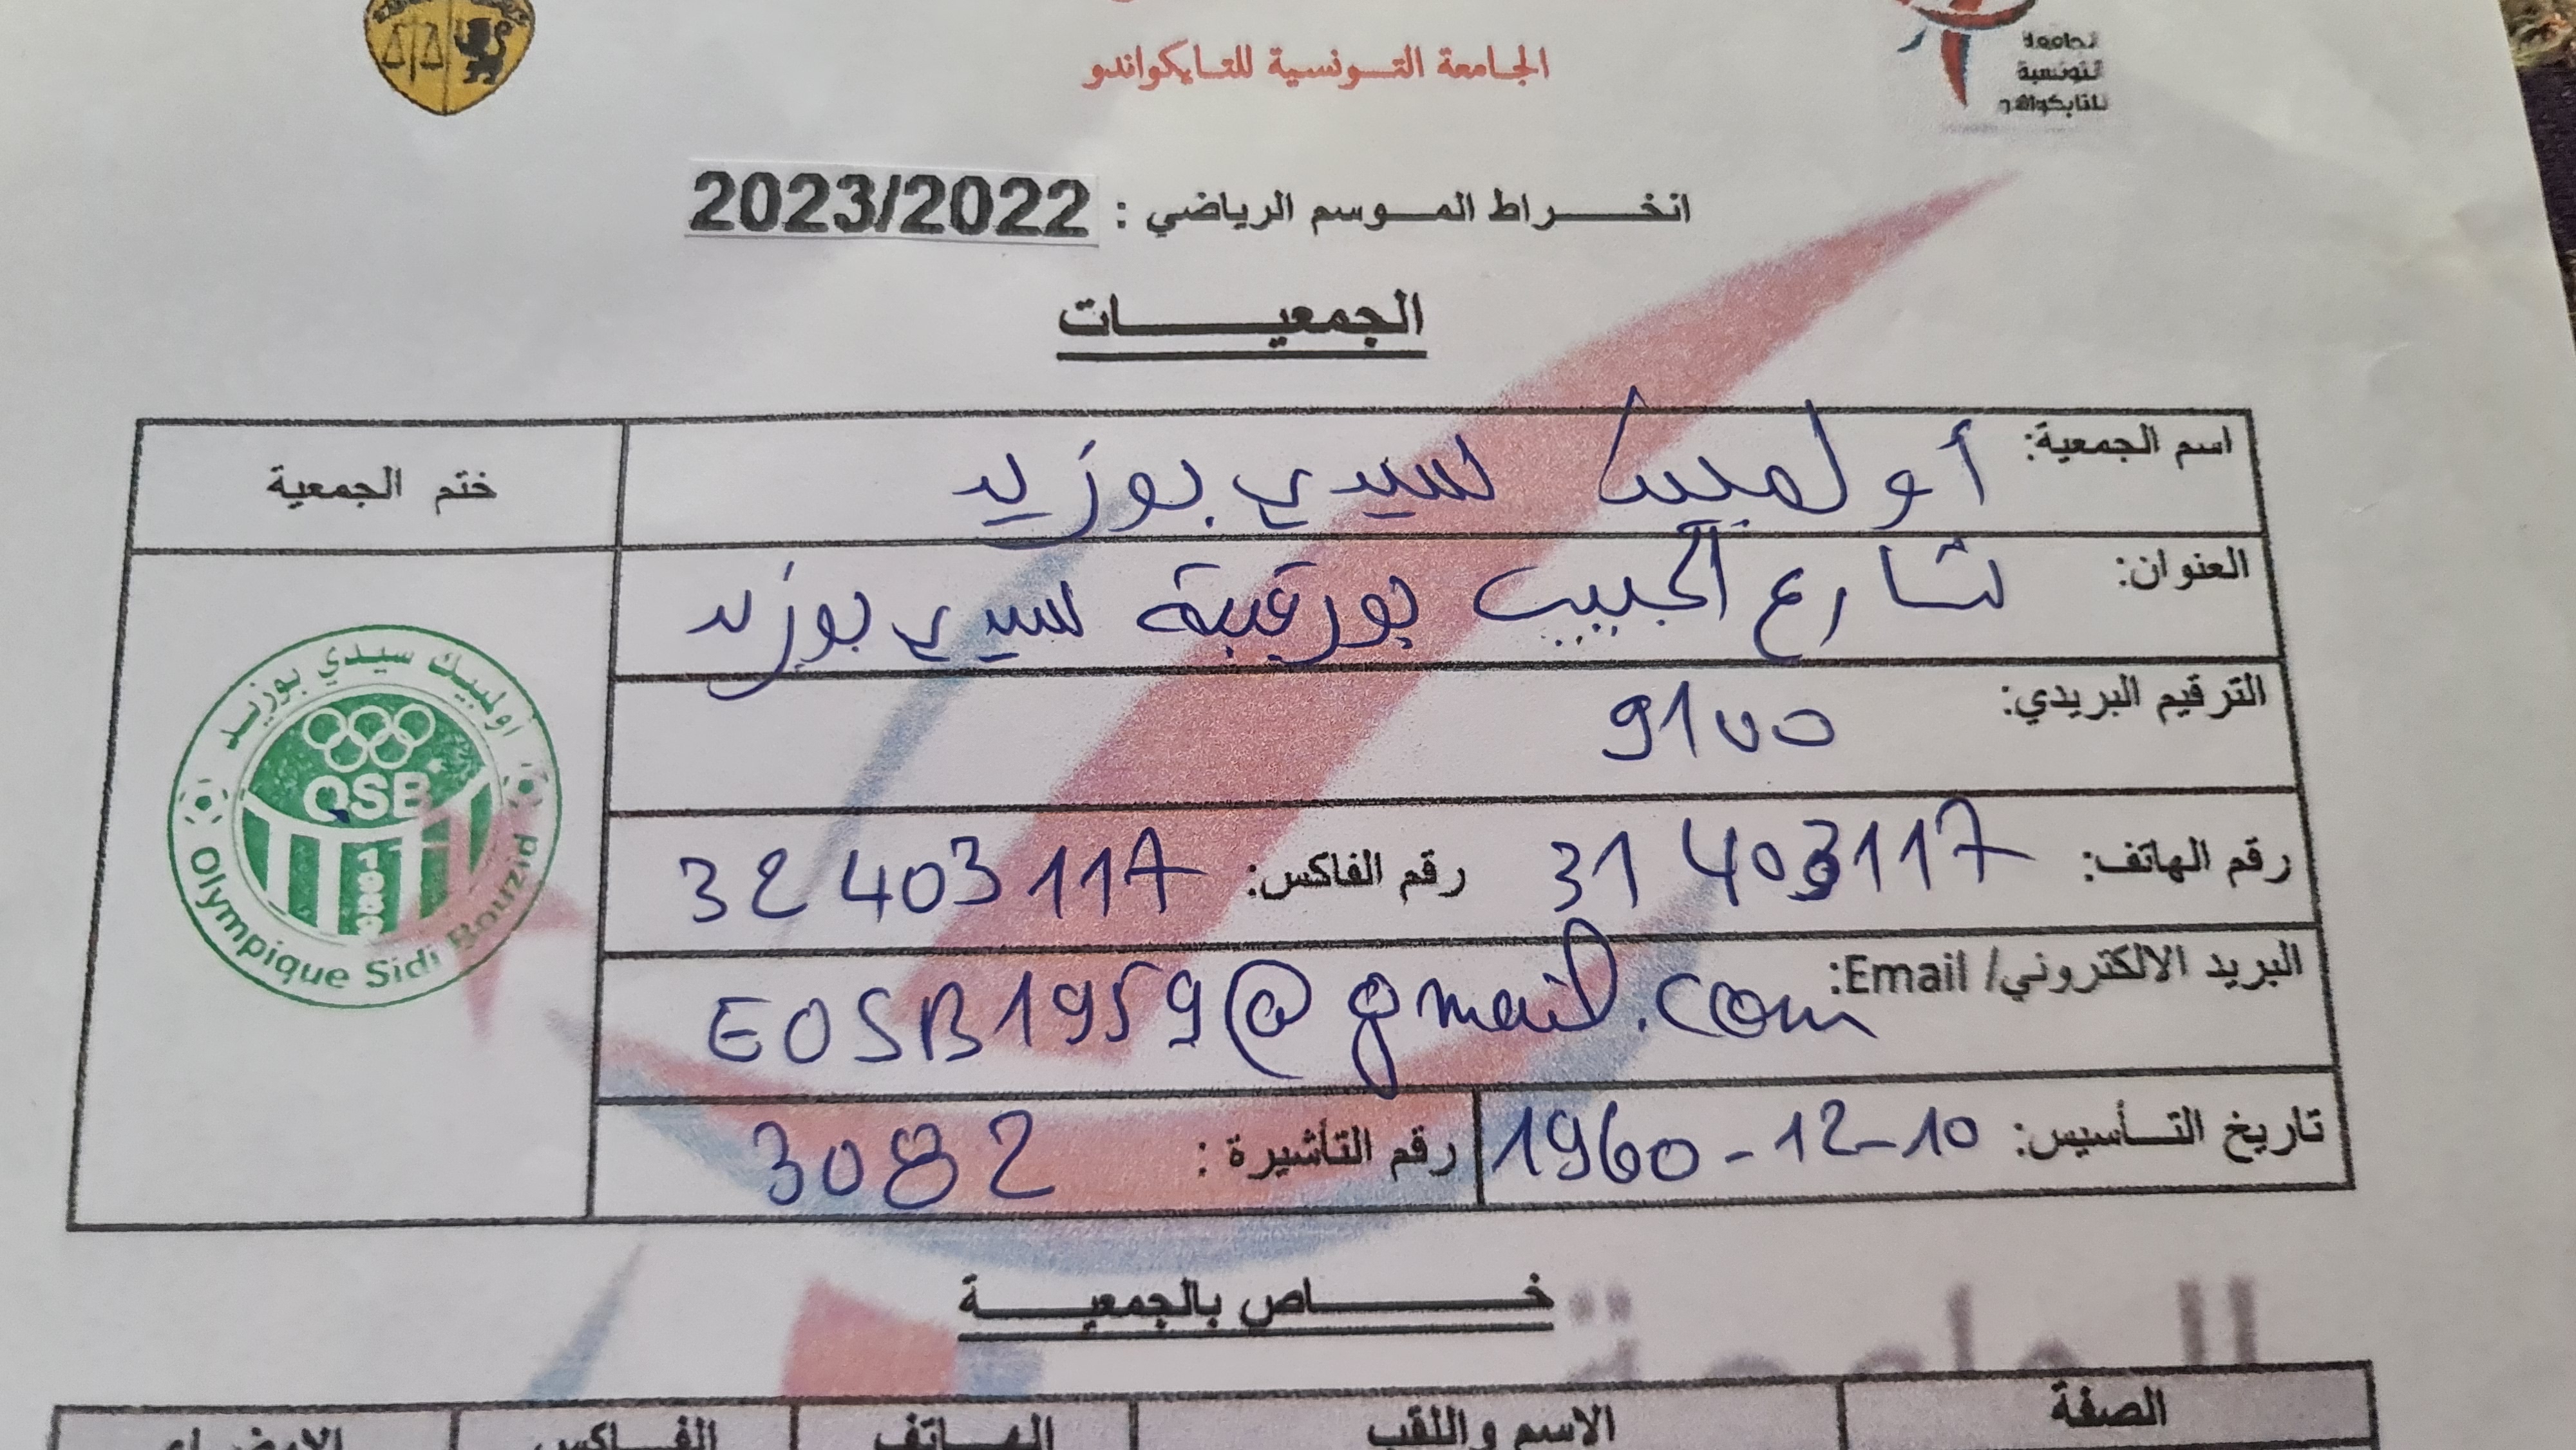 الجامعة التونسية للتايكواندو
الجامعة
التونسية
للتايكواندو
انخراط الموسم الرياضي : 2023/2022
الجمعيات
اسم الجمعية: أولمبيك سيدي بوزيد
ختم الجمعية
العنوان: شارع الحبيب بورقيبة سيدي بوزيد
الترقيم البريدي: 9100
رقم الهاتف: 31 403117 رقم الفاكس: 32 403 117
البريد الالكتروني/ Email: EOSB1959@gmail.com
تاريخ التأسيس: 1960-12-10 رقم التأشيرة : 3082
اولمبيك سيدي بوزيد
OSB
Olympique Sidi Bouzid
خاص بالجمعية
الصفة الاسم واللقب الهاتف الفاكس الامضاء